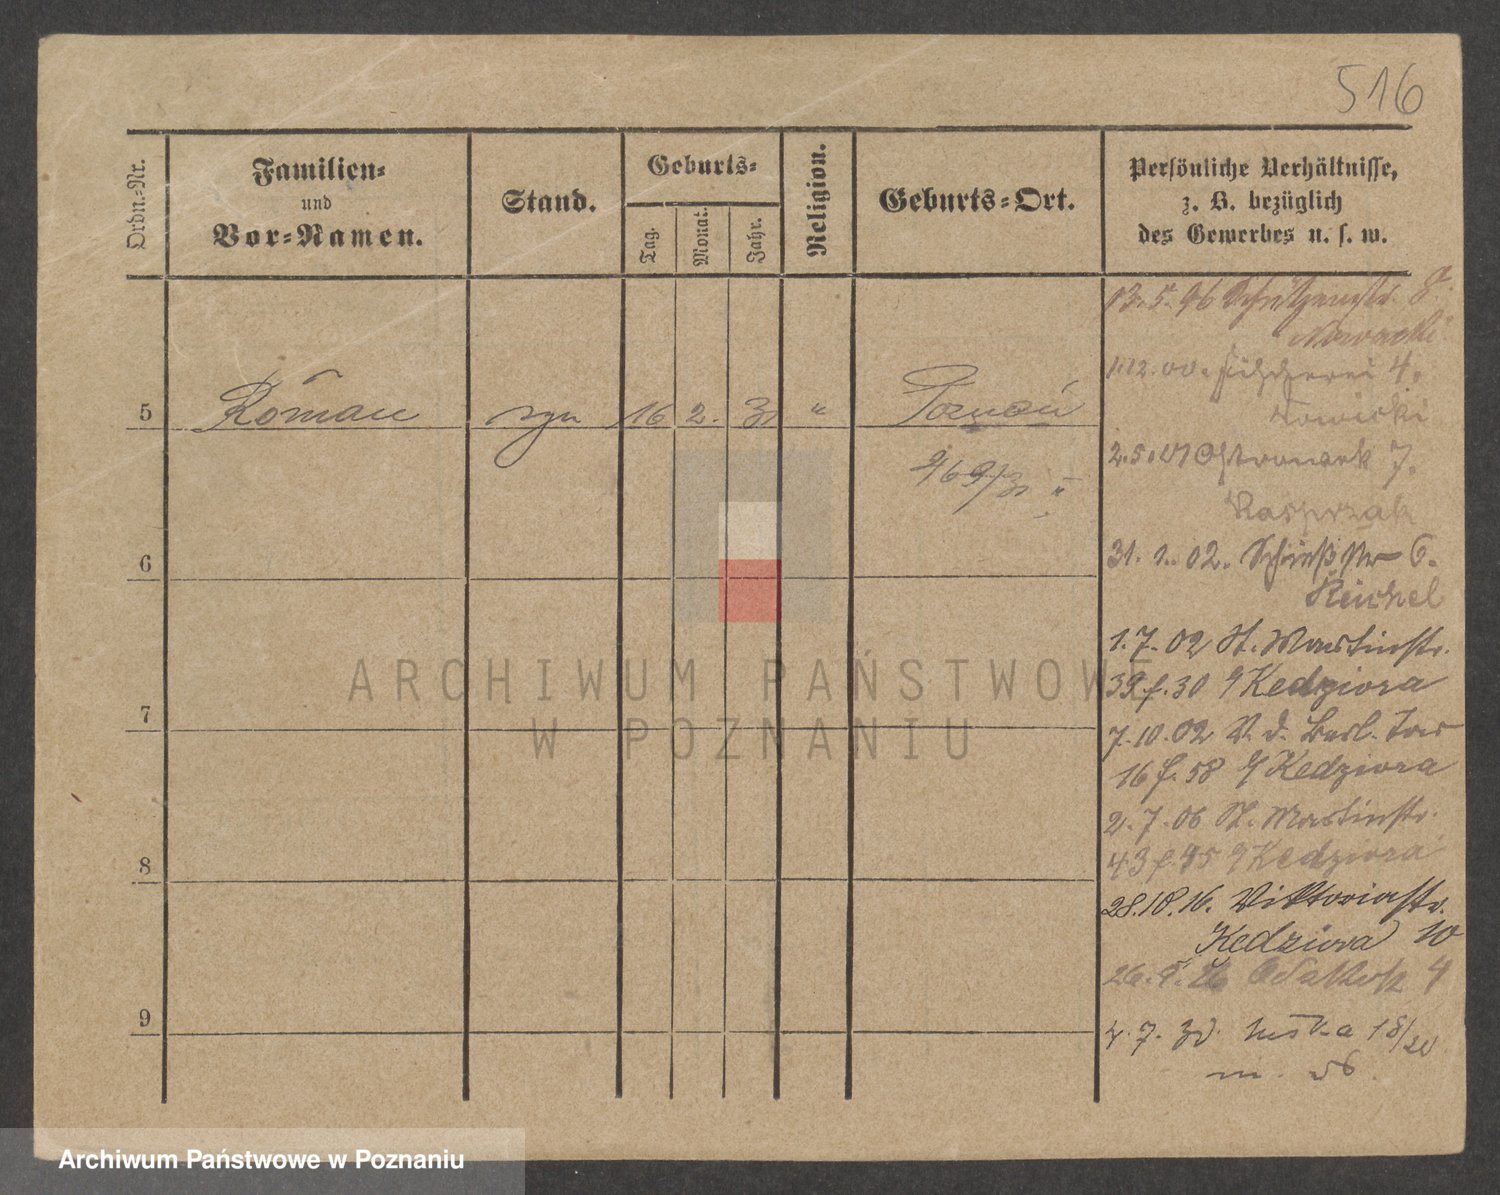 516
Ordn.-Nr.
Familien-
und
Vor-Namen.
Stand.
Geburts-
Tag.
Monat.
Jahr.
Religion.
Geburts-Ort.
Persönliche Verhältnisse,
z. B. bezüglich
des Gewerbes u. s. w.
13.5.96 Schützenstr.
Nowacki
1.12.00. Fischerei 4.
2.5.01 Ostrowek 7.
Kasprzak
5 Roman syn 16 2. 31 " Poznań
969/31
31. 1. 02. Schießstr 6.
Reichel
6
1.7.02 St. Martinstr.
39 f. 30 Kedziora
7
7.10.02 V. d. Berl. Tor
16 f. 58 Kedziora
2.7.06 St. Martinstr.
43 f. 45 Kedziora
8
28.10.16. Viktoriastr.
Kedziora 10
9
4.7.30. 18/20
m. 56.
ARCHIWUM PAŃSTWOWE
W POZNANIU
Archiwum Państwowe w Poznaniu